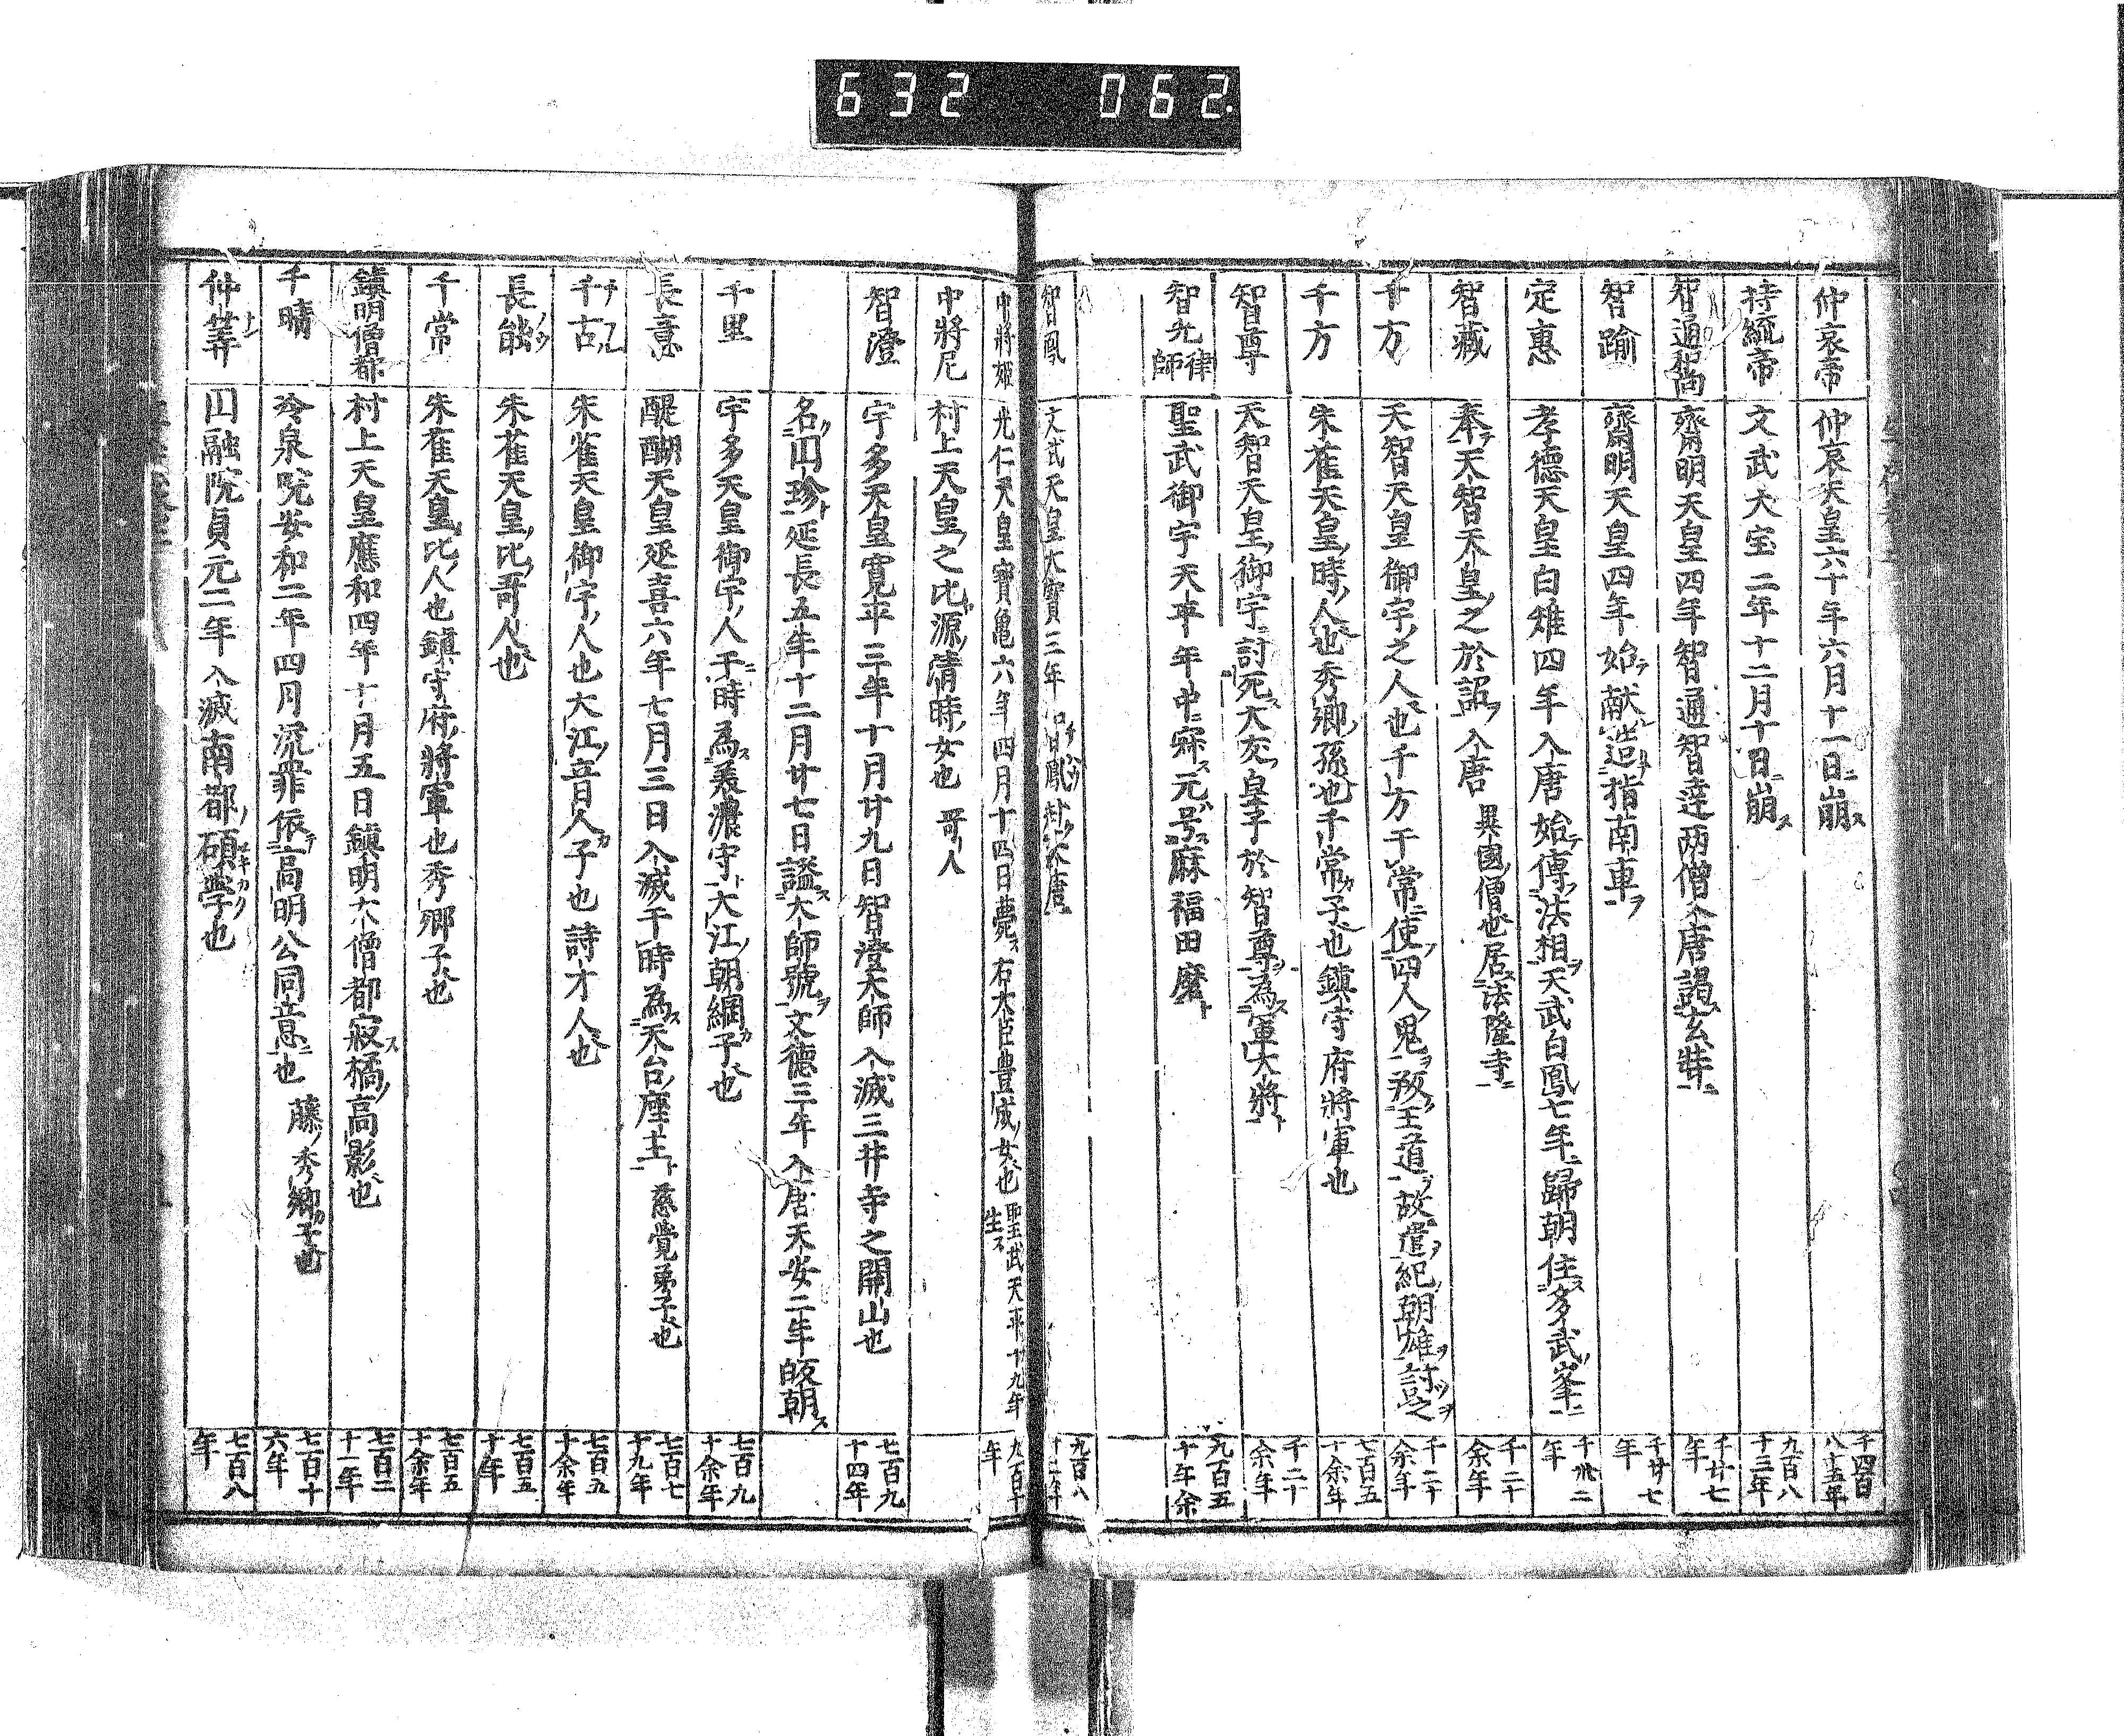 632 062.
仲哀帝 仲哀天皇六十年六月十一日ニ崩ス 千四百八十五年
持統帝 文武大宝二年十二月十日ニ崩ス 九百八十三年
智通和尚 齋明天皇四年智通智達两僧入唐謁ス玄弉ニ 千廿七年
智踰 齋明天皇四年始テ献ス造指南車ヲ 千廿七年
定惠 孝德天皇白雉四年入唐始テ傳フ法相ヲ天武白鳳七年ニ歸朝住ス多武ノ峯ニ 千卅二年
智藏 奉テ天智天皇之於詔ヲ入唐 異國ノ僧也居ス法隆寺ニ 千二十余年
千方 天智天皇御宇之人也千方干常ニ使フ四人ノ鬼ヲ 王道ヲ故遣ヲ紀ノ朝雄ヲ討之ヲ 千二十余年
千方 朱雀天皇ノ時ノ人也秀卿ノ孫也千常カ子也鎮守府將軍也 七百五十余年
智尊 天智天皇ノ御宇討死ス大友ノ皇子於智尊ヲ為ス軍大將ト 千二十余年
智光律師 聖武御宇天平年中ニ寂ス元号ス麻福田麿ト 九百五十年余
智鳳 文武天皇大寳三年 入唐 九百八十二年
中將姫 光仁天皇寳亀六年四月十四日薨ス右大臣豊成ノ女也 聖武天平十九年生ス 九百十年
中將尼 村上天皇ノ之比源ノ清時ノ女也 哥人
智澄 宇多天皇寛平三年十月廿九日智澄大師入滅三井寺之開山也 七百九十四年
名ク囘珍ト延長五年十二月廿七日謚ス大師號ヲ文徳三年入唐天安二年皈朝ス
千里 宇多天皇御宇ノ人干時為ス美濃守ト大江ノ朝綱カ子也 七百九十余年
長意 醍醐天皇延喜六年七月三日入滅干時為ス天台ノ座主ト 慈覺弟子也 七百七十九年
千古 朱雀天皇御宇ノ人也大江ノ音人カ子也詩才人也 七百五十余年
長能 朱雀天皇ノ比ノ哥人也 七百五十年
千常 朱雀天皇ノ比ノ人也鎮守府ノ將軍也秀郷ノ子也 七百五十余年
鎮明僧都 村上天皇應和四年十月五日鎮明大僧都寂ス橘ノ高影也 七百二十一年
千晴 冷泉院安和二年四月流罪依テ高明公同意ニ也 藤ノ秀卿カ子也 七百十六年
仲筭 囘融院貞元二年入滅南都ノ碩学也 七百八年